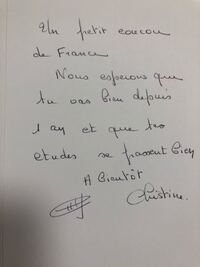 Un petit coucou
de France
Nous esperons que
tu vas bien depuis
1 an et que tes
etudes se passent bien
A Bientôt
Christine.